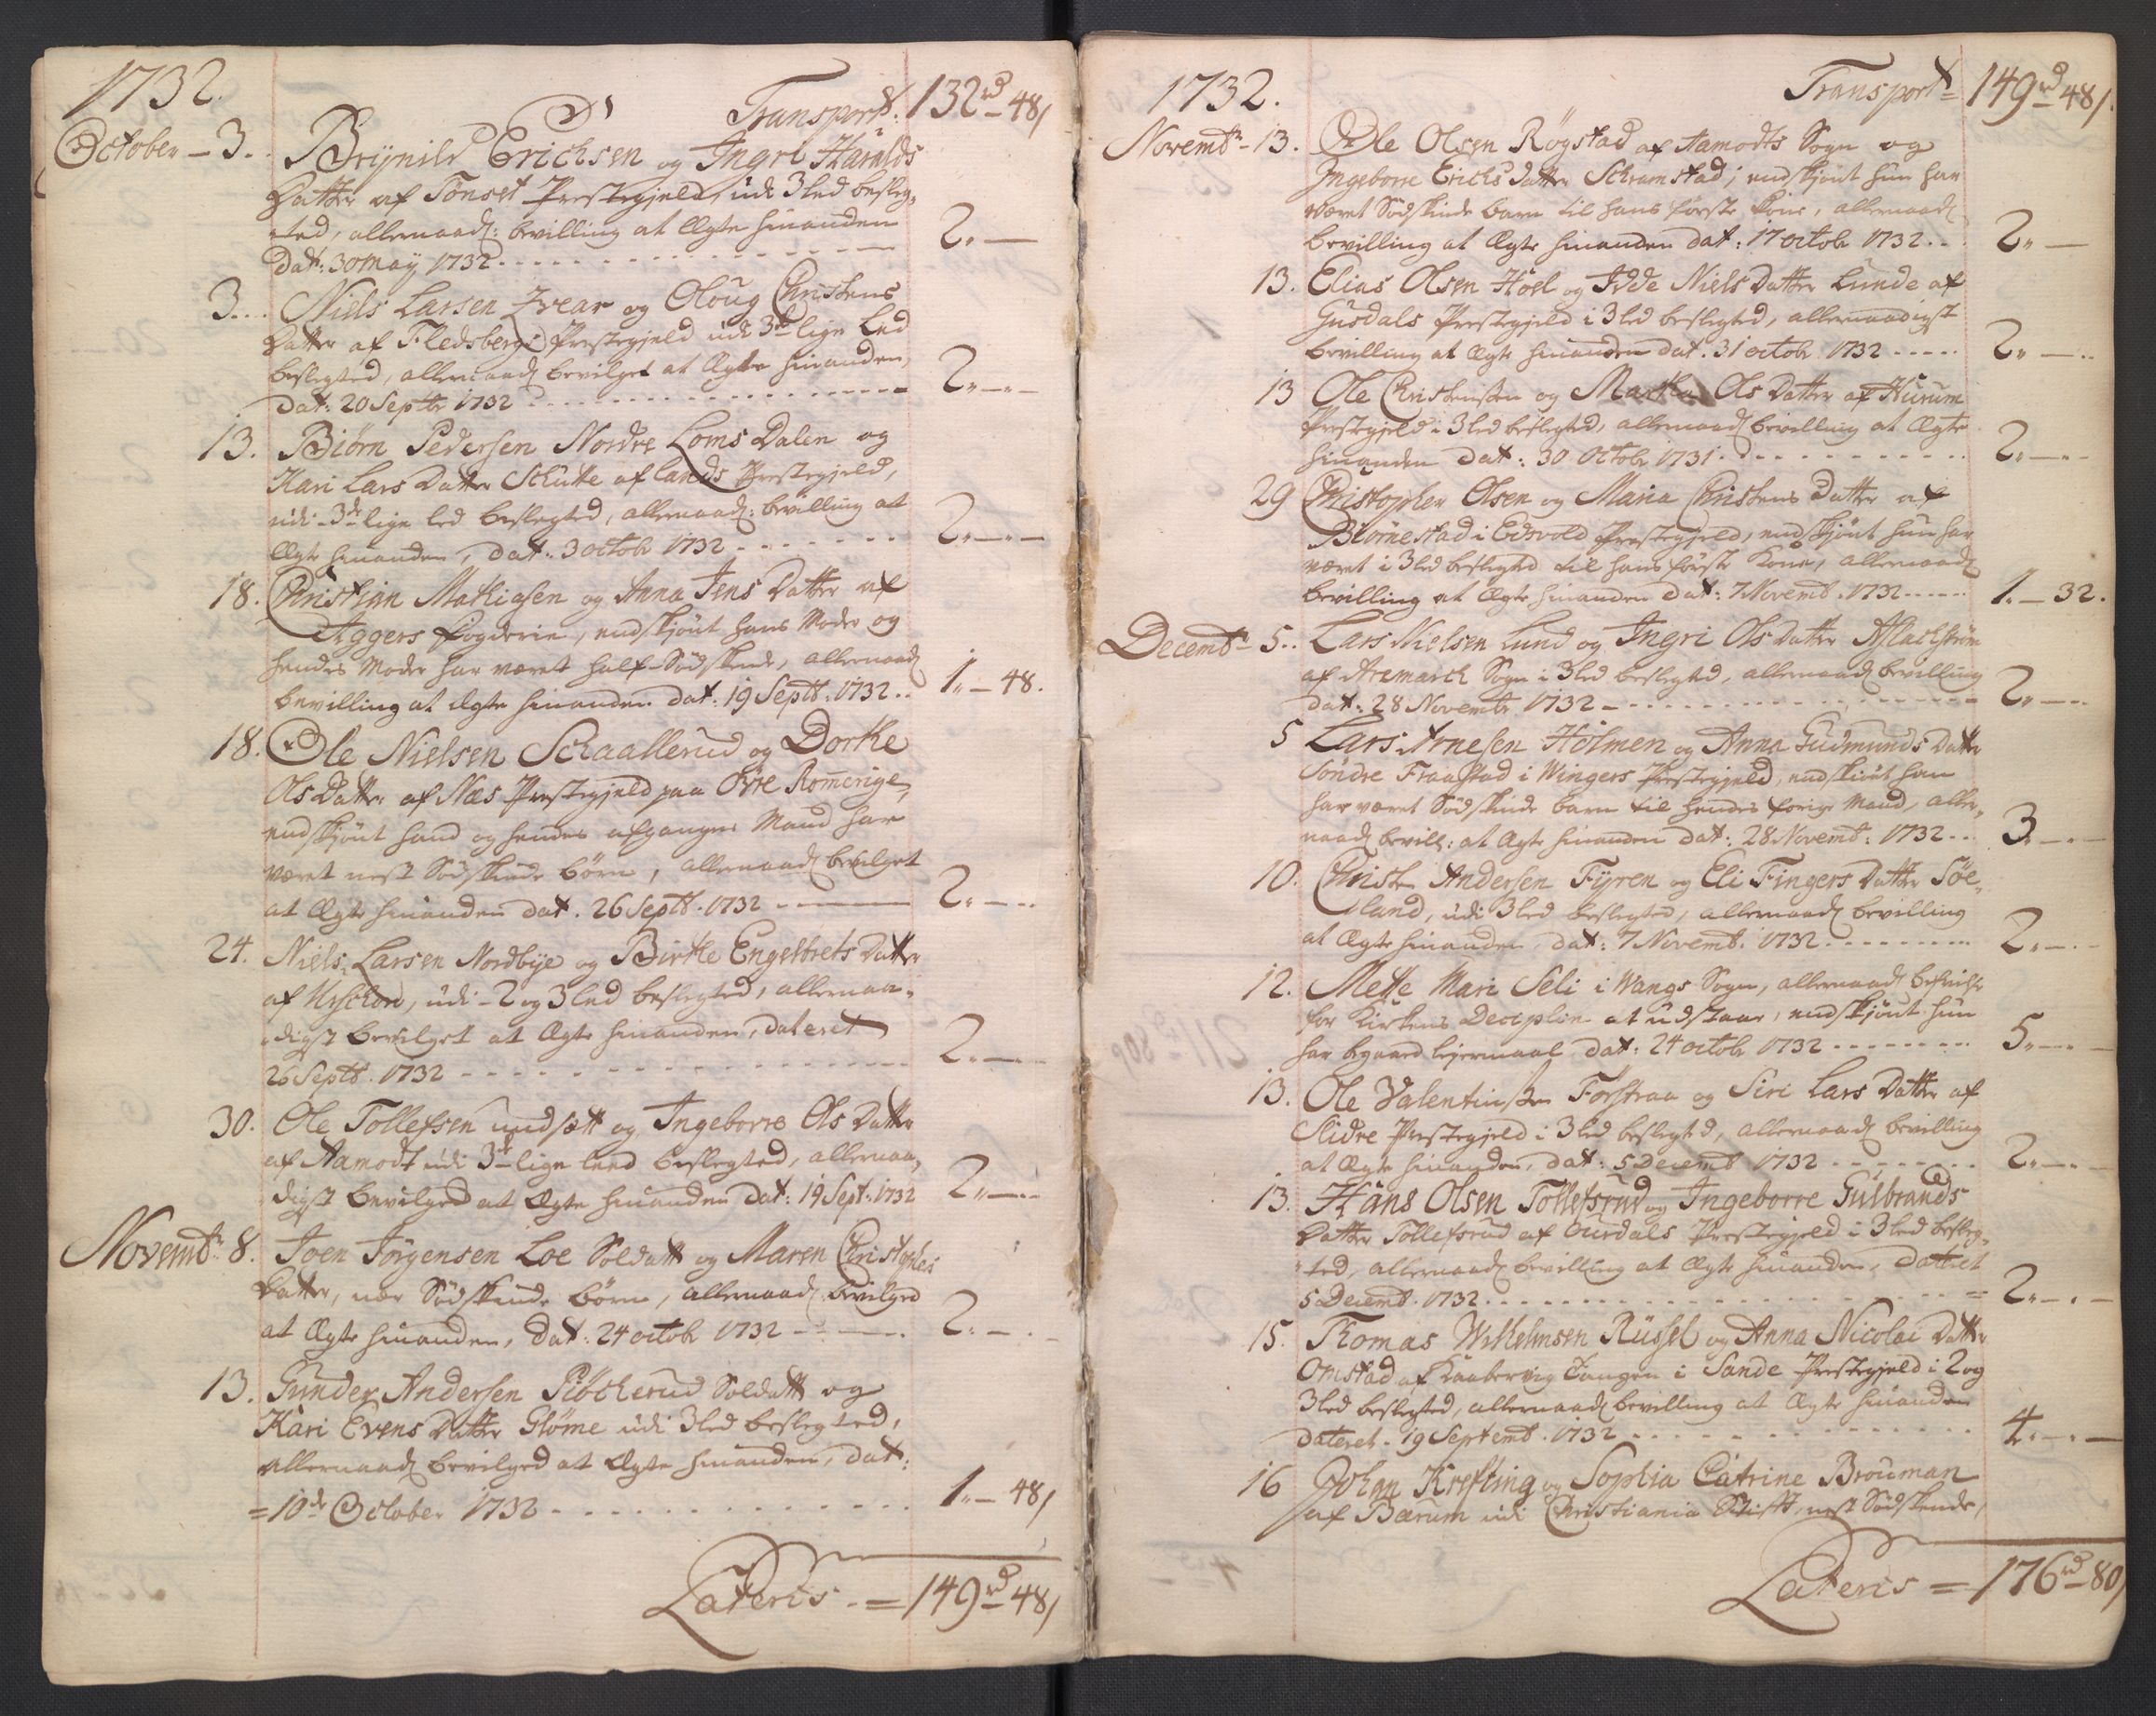 1732.
Transport. 132 rd - 48 /
October - 3. Brÿnild Erichsen og Ingri Haralds
Datter af Tønset Prestegjeld, udi 3 led besleg-
ted, allernaad: bevilling at Ægte hinanden
Dat: 30 Maÿ 1732 - - - 2.. —
3... Niels Larsen og Oloug Christens
Datter af Fledsberg Prestegjeld udi 3de lige Led
beslegted, allernaad: bevilget at Ægte hinanden,
dat: 20 Septbr 1732 - - - 2.. —
13. Biørn Pedersen Nordre Loms Dalen og
Kari Lars Datter Schütte af Lands Prestegjeld,
udi 3de lige led beslegted, allernaad: bevilling at
Ægte hinanden, dat: 3 octobr 1732 - - - 2.. —
18. Christian Mathiasen og Anna Jens Datter af
Aggers fogderie, endskjønt hans Moder og
hendes Moder har været half-Södskende, allernaad:
bevilling at Ægte hinanden dat: 19 Septb: 1732.. 1.. — 48.
18. Ole Nielsen Schaallerud og Dorthe
Ols Datter af Næs Prestegjeld paa Öfre Romerige,
endskjønt hand og hendes afgangne Mand har
været nest Södskinde börn, allernaad: bevilget
at Ægte hinanden dat. 26 Septb. 1732 - - - 2.. —
24. Niels Larsen Nordbÿe og Birthe Engelbrets Datter
af Urschou, udi - 2 og 3 led beslegted, allernaa-
digst bevilget at Ægte hinanden, dateret
26 Septb. 1732 - - - 2.. —
30. Ole Tollefsen undsætt og Ingeborre Ols Datter
af Aamodt udi 3de lige leed beslegted, allernaa-
digst bevilged at Ægte hinanden dat: 19 Sept: 1732 2.. —
Novembr 8. Joen Jörgensen Loe Soldatt og Maren Christophers
Datter, nær Södskende börn, allernaad: bevilged
at Ægte hinanden, dat: 24 octobr 1732 - - - 2.. —
13. Gunder Andersen Soldatt og
Kari Evens Datter Glöme udi 3 led beslegted,
allernaad: bevilged at Ægte hinanden, dat:
= 10de October 1732 - - - 1.. — 48 /
Lateris - = 149 rd - 48 /
1732.
Transport = 149 rd - 48 /.
Novembr - 13. Ole Olsen Rögstad af Aamodts Sogn og
Ingeborre Erichs datter Schramstad, endskjønt hun har
været Södskinde barn til hans förste kone, allernaad:
bevilling at Ægte hinanden dat: 17 octobr 1732.. 2.. —
13. Elias Olsen Höel og Idde Niels Datter Lunde af
Gusdals Prestegjeld i 3 led beslegted, allernaadigst
bevilling at Ægte hinanden dat. 31 octobr 1732 - - - 2.. —
13 Ole Christensen og Martha Ols Datter af Hurum
Prestegjeld i 3 led beslegted, allernaad: bevilling at Ægte
hinanden dat: 30 Octobr 1731. - - - 2.. —
29 Christopher Olsen og Maria Christens Datter af
Biörnestad i Edsvold Prestegjeld, endskjønt hun har
været i 3 led beslegted til hans förste Kone, allernaad:
bevilling at Ægte hinanden dat: 7 Novemb. 1732 - - - 1. — 32.
Decembr 5.. Lars Nielsen Lund og Ingri Ols datter Aslachström
af Aremarck Sogn i 3 led beslegted, allernaad: bevilling
dat: 28 Novembr 1732 - - - 2.. —
5 Lars Arnesen Holmen og Anna Gudmunds Datter
Söndre Fraastad i Wingers Prestegjeld, endskjønt han
har været Södskinde barn til hendes forige Mand, aller-
naad: bevill: at Ægte hinanden dat: 28 Novemb: 1732.. 3. —
10. Christen Andersen Fÿren og Eli Fingers Datter Söe-
land, udi 3 led beslegted, allernaad: bevilling
at Ægte hinanden dat: 7 Novemb. 1732. - - - 2.. —
12. Mette Mari Seli i Wangs Sogn, allernaad: befrielse
for Kirkens Deciplin at udstaae, endskjønt hun
har begaaed leiermaal dat: 24 octobr 1732 - - - 5.. —
13. Ole Valentinsen Forstraa og Siri Lars Datter af
Slidre Prestegjeld i 3 led beslegted, allernaad: bevilling
at Ægte hinanden, dat: 5 Decemb 1732 - - - 2.. —
13. Hans Olsen Tollefsrud og Ingeborre Gulbrands
Datter Tollefsrud af Ourdals Prestegjeld i 3 led besleg-
ted, allernaad: bevilling at Ægte hinanden, Datteret
5 Decemb. 1732. - - - 2.. —
15. Thomas Wilhelmsen Rüssel og Anna Nicolai Datter
Omstad af Tangen i Sande Prestegjeld i 2 og
3 led beslegted, allernaad: bevilling at Ægte hinanden
dateret - 19 Septemb. 1732 - - - 4.. —
16 Johan Krefting og Sophia Catrine Brouman
af Bærum udi Christiania Stift, nest Södskende,
Lateris = 176 rd - 80 /